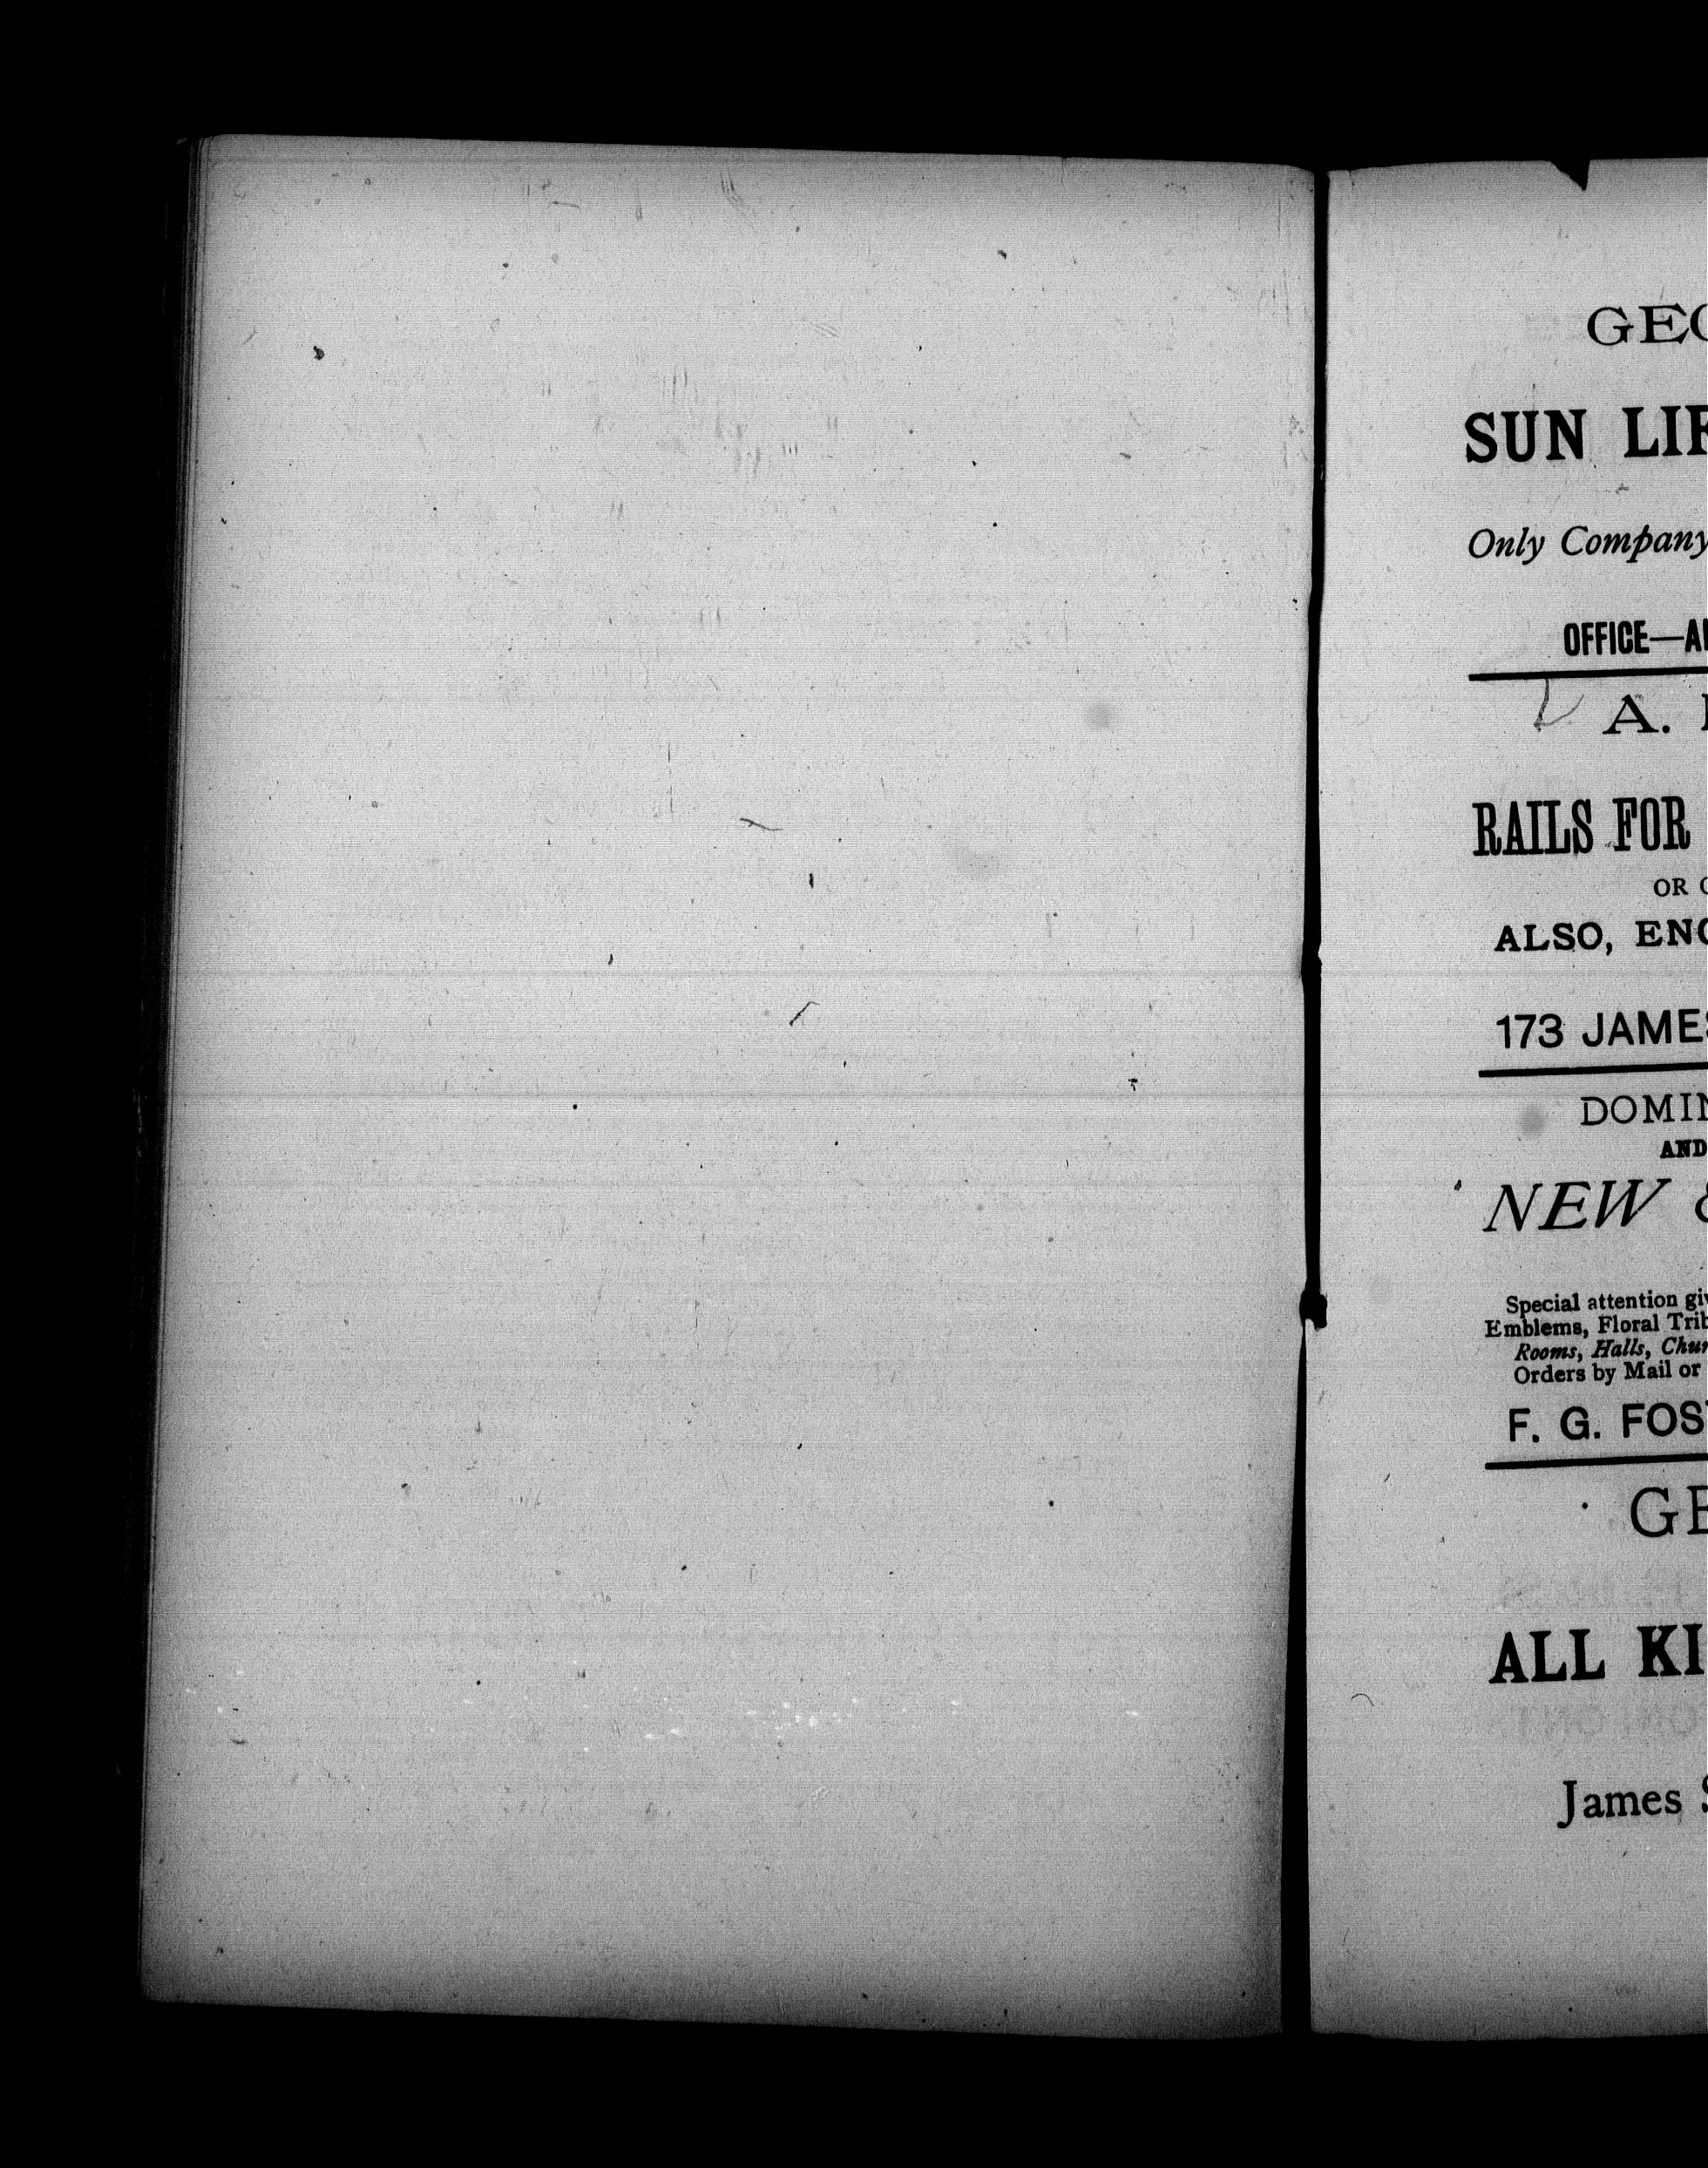 GEO
SUN LIF
Only Company
OFFICE—A
A.
RAILS FOR
OR
ALSO, ENG
173 JAMES
DOMIN
AND
NEW &
Special attention giv
Emblems, Floral Trib
Rooms, Halls, Chur
Orders by Mail or
F. G. FOST
GE
ALL KI
James S